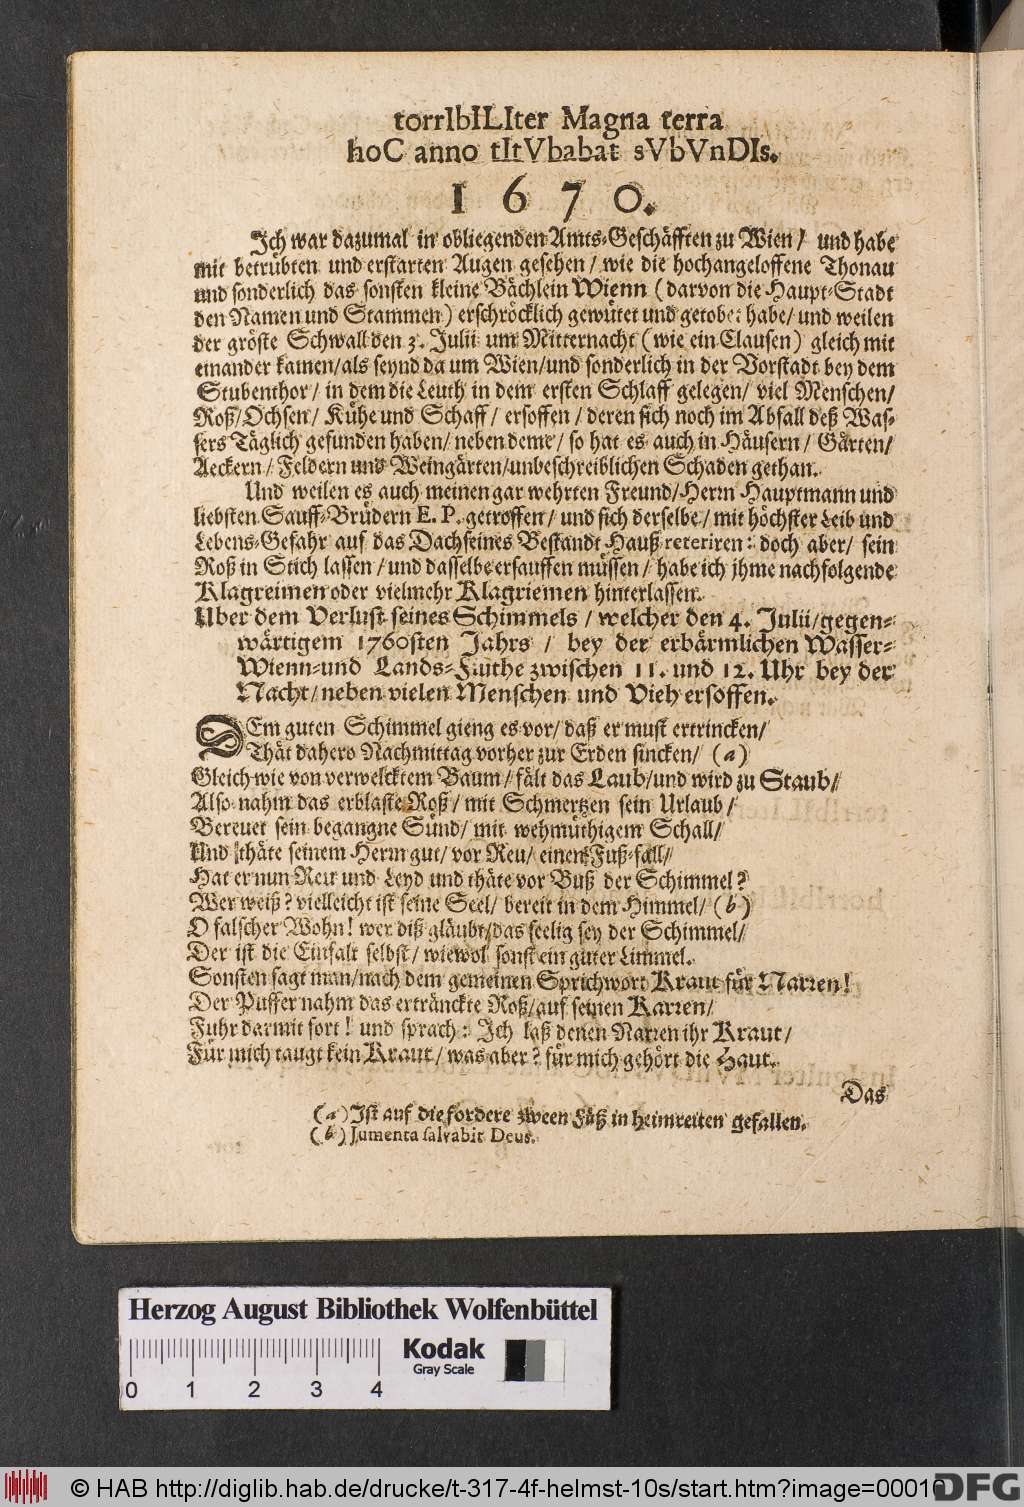 torrIbILIter Magna terra
hoC anno tItVbabat sVbVnDIs.
1670.
Ich war dazumal in obliegenden Amts-Geschäfften zu Wien / und habe
mit betrübten und erstarten Augen gesehen / wie die hochangeloffene Thonau
und sonderlich das sonsten kleine Bächlein Wienn (darvon die Haupt-Stadt
den Namen und Stammen) erschröcklich gewütet und getobet habe / und weilen
der gröste Schwall den 3. Julii um Mitternacht (wie ein Clausen) gleich mit
einander kamen / als seynd da um Wien / und sonderlich in der Vorstadt bey dem
Stubenthor / in dem die Leuth in dem ersten Schlaff gelegen / viel Menschen /
Roß / Ochsen / Kühe und Schaff / ersoffen / deren sich noch im Abfall deß Was-
sers Täglich gefunden haben / neben deme / so hat es auch in Häusern / Gärten /
Aeckern / Feldern und Weingärten / unbeschreiblichen Schaden gethan.
Und weilen es auch meinen gar wehrten Freund / Herrn Hauptmann und
liebsten Sauff-Brüdern E. P. getroffen / und sich derselbe / mit höchster Leib und
Lebens-Gefahr auf das Dach seines Bestandt Hauß reteriren: doch aber / sein
Roß in Stich lassen / und dasselbe ersauffen müssen / habe ich jhme nachfolgende
Klagreimen oder vielmehr Klagriemen hinterlassen.
Uber dem Verlust seines Schimmels / welcher den 4. Julii / gegen-
wärtigem 1760sten Jahrs / bey der erbärmlichen Wasser-
Wienn- und Lands-Fluthe zwischen 11. und 12. Uhr bey der
Nacht / neben vielen Menschen und Vieh ersoffen.
DEm guten Schimmel gieng es vor / daß er must ertrincken /
Thät dahero Nachmittag vorher zur Erden sincken / (a)
Gleich wie von verwelcktem Baum / fält das Laub / und wird zu Staub /
Also nahm das erblaste Roß / mit Schmertzen sein Urlaub /
Bereuet sein begangne Sünd / mit wehmüthigem Schall /
Und thäte seinem Herrn gut / vor Reu / einen Fuß-fall /
Hat er nun Reu und Leyd und thäte vor Buß der Schimmel?
Wer weiß? vielleicht ist seine Seel / bereit in dem Himmel / (b)
O falscher Wohn! wer diß gläubt / das seelig sey der Schimmel /
Der ist die Einfalt selbst / wiewol sonst ein guter Limmel.
Sonsten sagt man / nach dem gemeinen Sprichwort Kraut für Narren!
Der Puffer nahm das ertränckte Roß / auf seinen Karren /
Fuhr darmit fort! und sprach: Ich laß denen Narren ihr Kraut /
Für mich taugt kein Kraut / was aber? für mich gehört die Haut.
Das
(a) Ist auf die fordere zween Füß in heimreiten gefallen.
(b) Jumenta salvabit Deus.
Herzog August Bibliothek Wolfenbüttel
Kodak
Gray Scale
0 1 2 3 4
© HAB http://diglib.hab.de/drucke/t-317-4f-helmst-10s/start.htm?image=00010
DFG